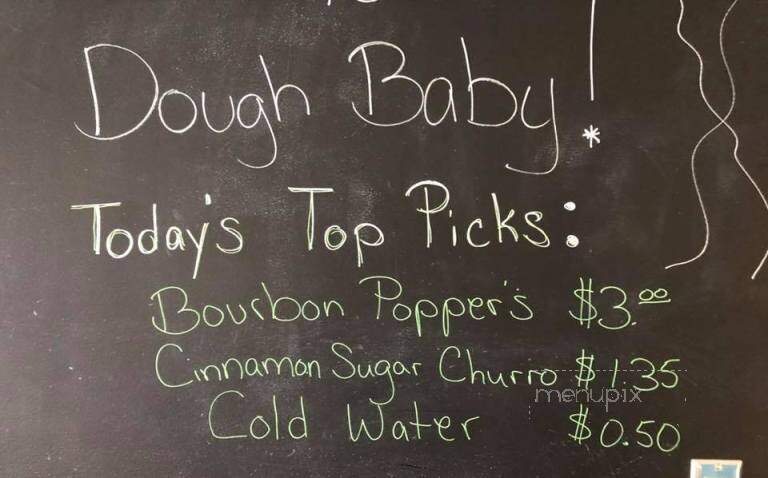 Dough Baby!
Today's Top Picks:
Bourbon Popper's $3.00
Cinnamon Sugar Churro $1.35
menupix
Cold Water $0.50